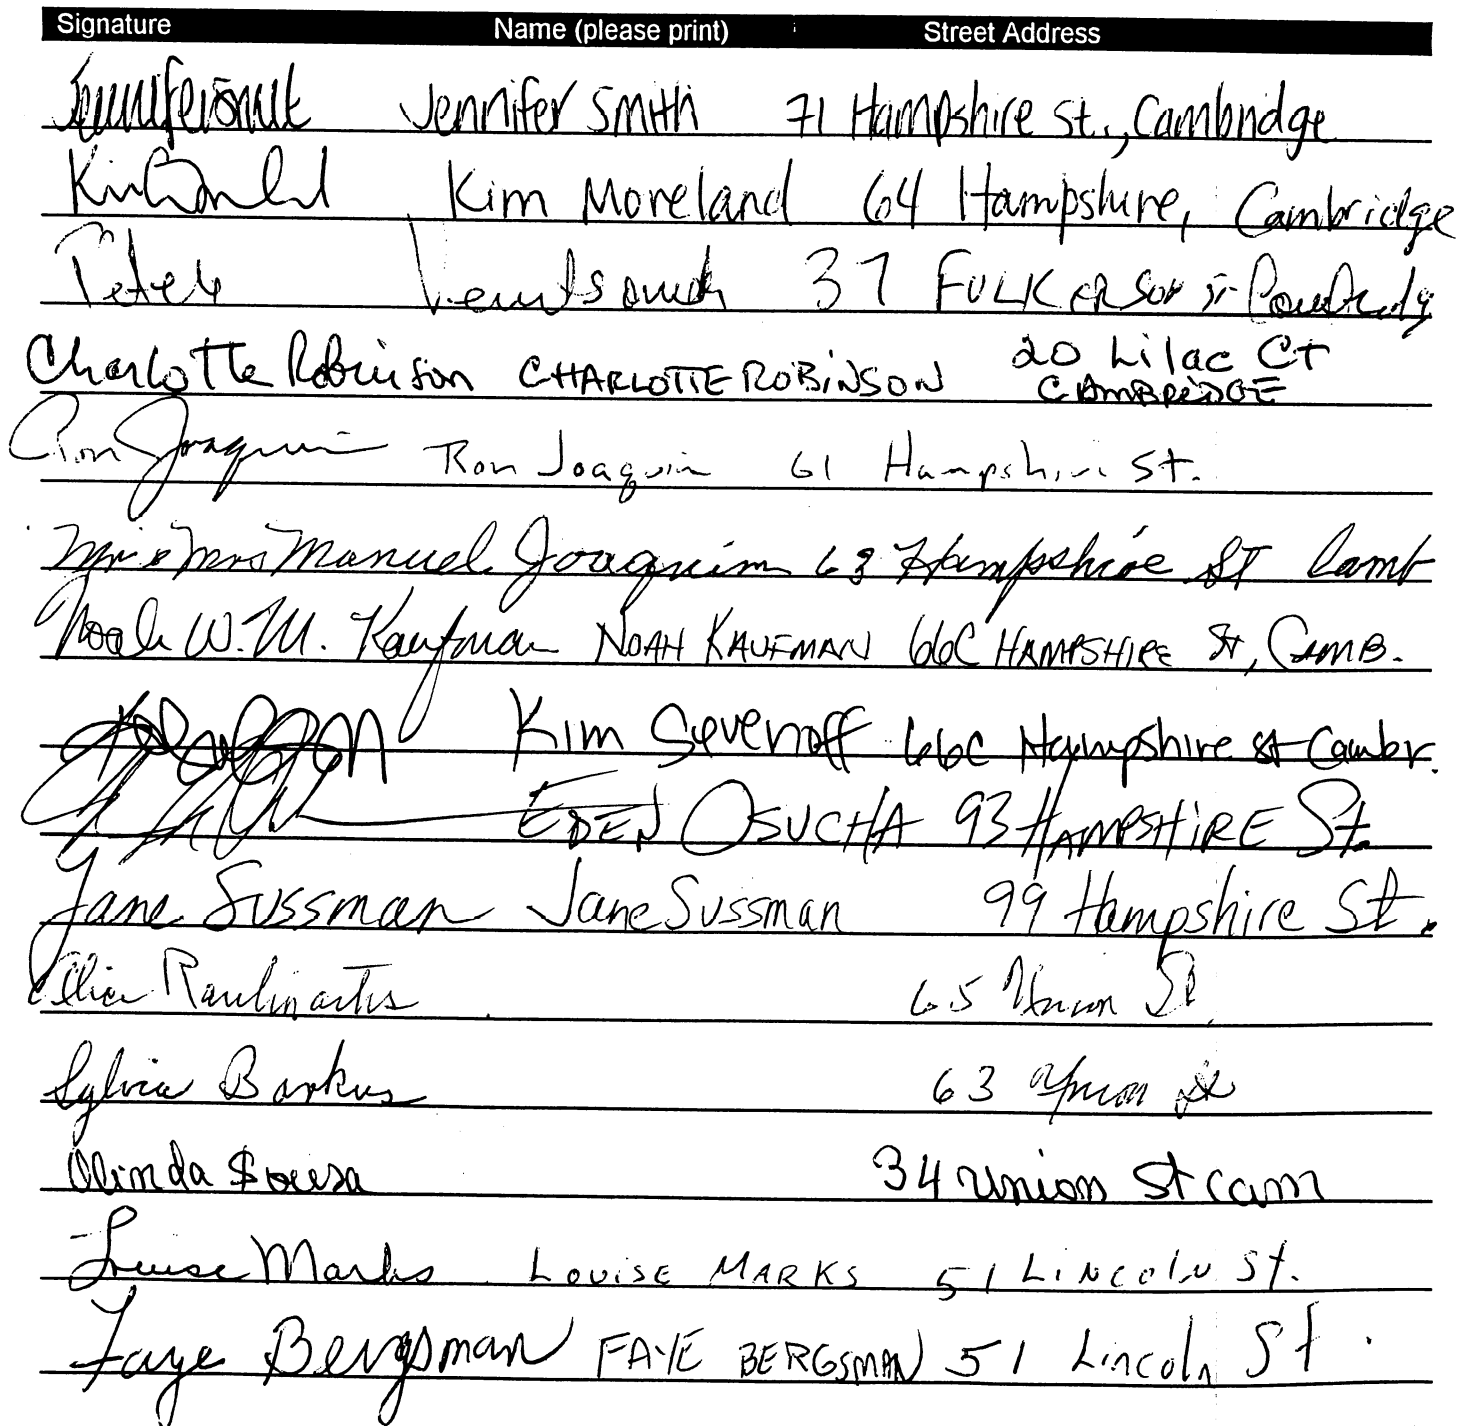 Signature Name (please print) Street Address
Jennifer Smith Jennifer Smith 71 Hampshire St., Cambridge
Kim Moreland 64 Hampshire, Cambridge
Peter 37 FULKERSON St
Charlotte Robinson CHARLOTTE ROBINSON 20 Lilac CT
CAMBRIDGE
Ron Joaquim Ron Joaquim 61 Hampshire St.
Mr & Mrs Manuel Joaquim 63 Hampshire ST Camb
Noah W.M. Kaufman NOAH KAUFMAN 66C HAMPSHIRE St, CAMB.
Kim Sevenoff 66C Hampshire St Cambr.
EDEN OSUCHA 93 HAMPSHIRE St.
Jane Sussman Jane Sussman 99 Hampshire St.
65 Union St
Sylvia Barkus 63 Union St
Olinda Sousa 34 Union St Cam
Louise Marks LOUISE MARKS 51 LINCOLN St.
Faye Bergsman FAYE BERGSMAN 51 Lincoln St.